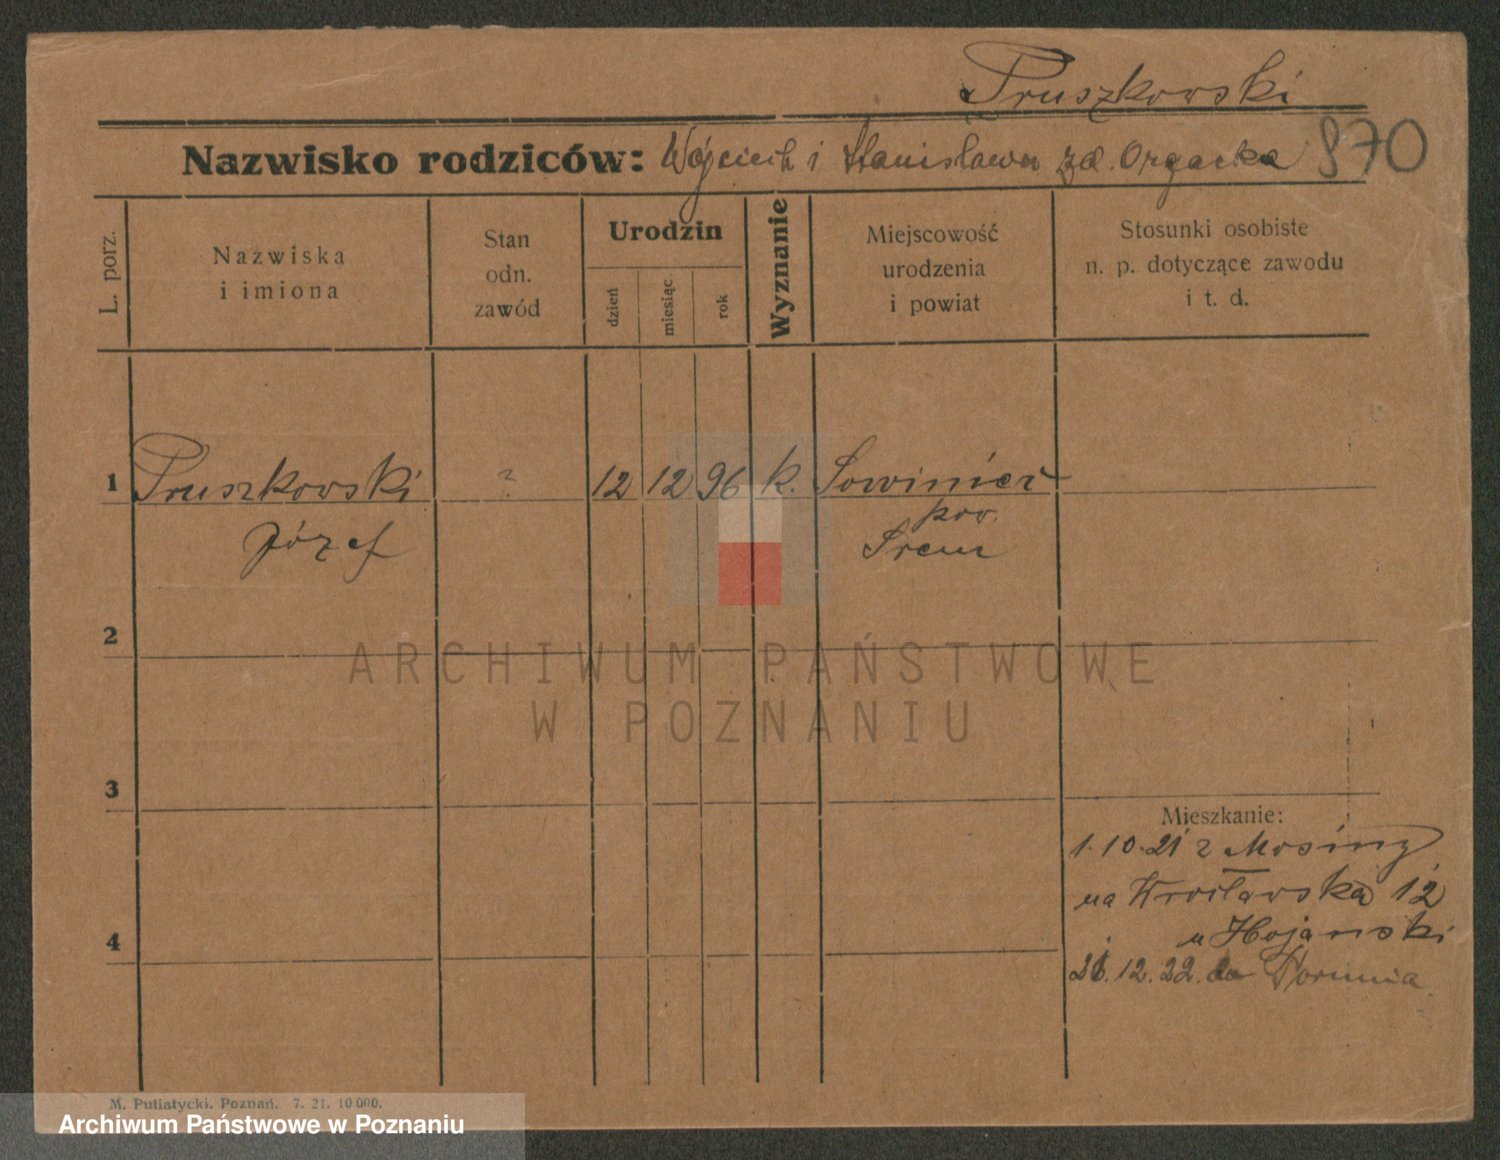 Pruszkowski
Nazwisko rodziców: Wojciech i Stanisława zd. Orgacka 870
L. porz.
Nazwiska
i imiona
Stan
odn.
zawód
Urodzin
dzień
miesiąc
rok
Wyznanie
Miejscowość
urodzenia
i powiat
Stosunki osobiste
n. p. dotyczące zawodu
i t. d.
1 Pruszkowski ? 12 12 96 k. Sowiniec
pow.
Józef Śrem
2
ARCHIWUM PAŃSTWOWE
W POZNANIU
3
Mieszkanie:
1.10.21 z Mosiny
na Wrocławska 12
4 u Hojanski
12.22. do Torunia.
M. Putiatycki. Poznań. 7. 21. 10 000.
Archiwum Państwowe w Poznaniu